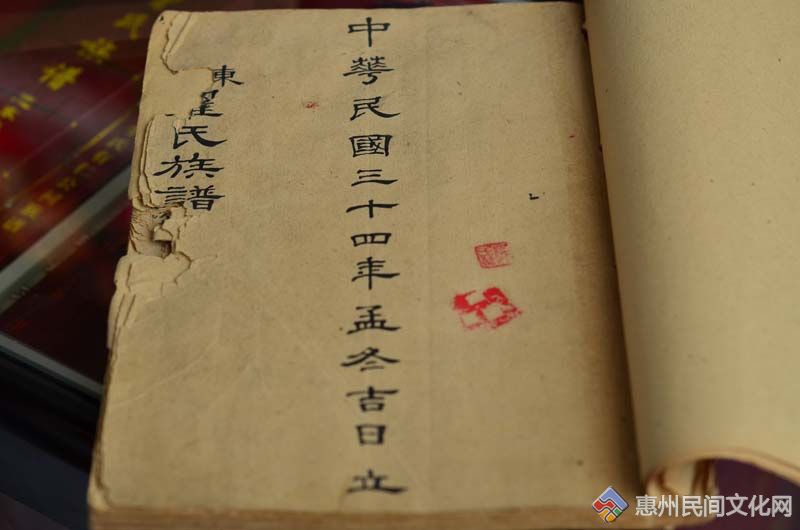 中華民國三十四年孟冬吉日立
東
翟氏族譜
惠州民间文化网